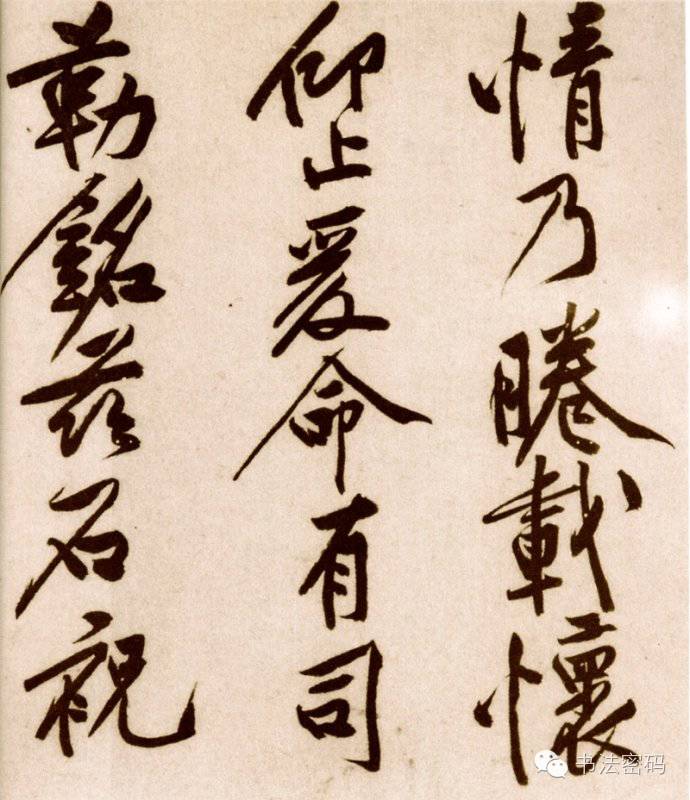 情乃睠載懷
仰止爰命有司
勒銘茲石祝
书法密码